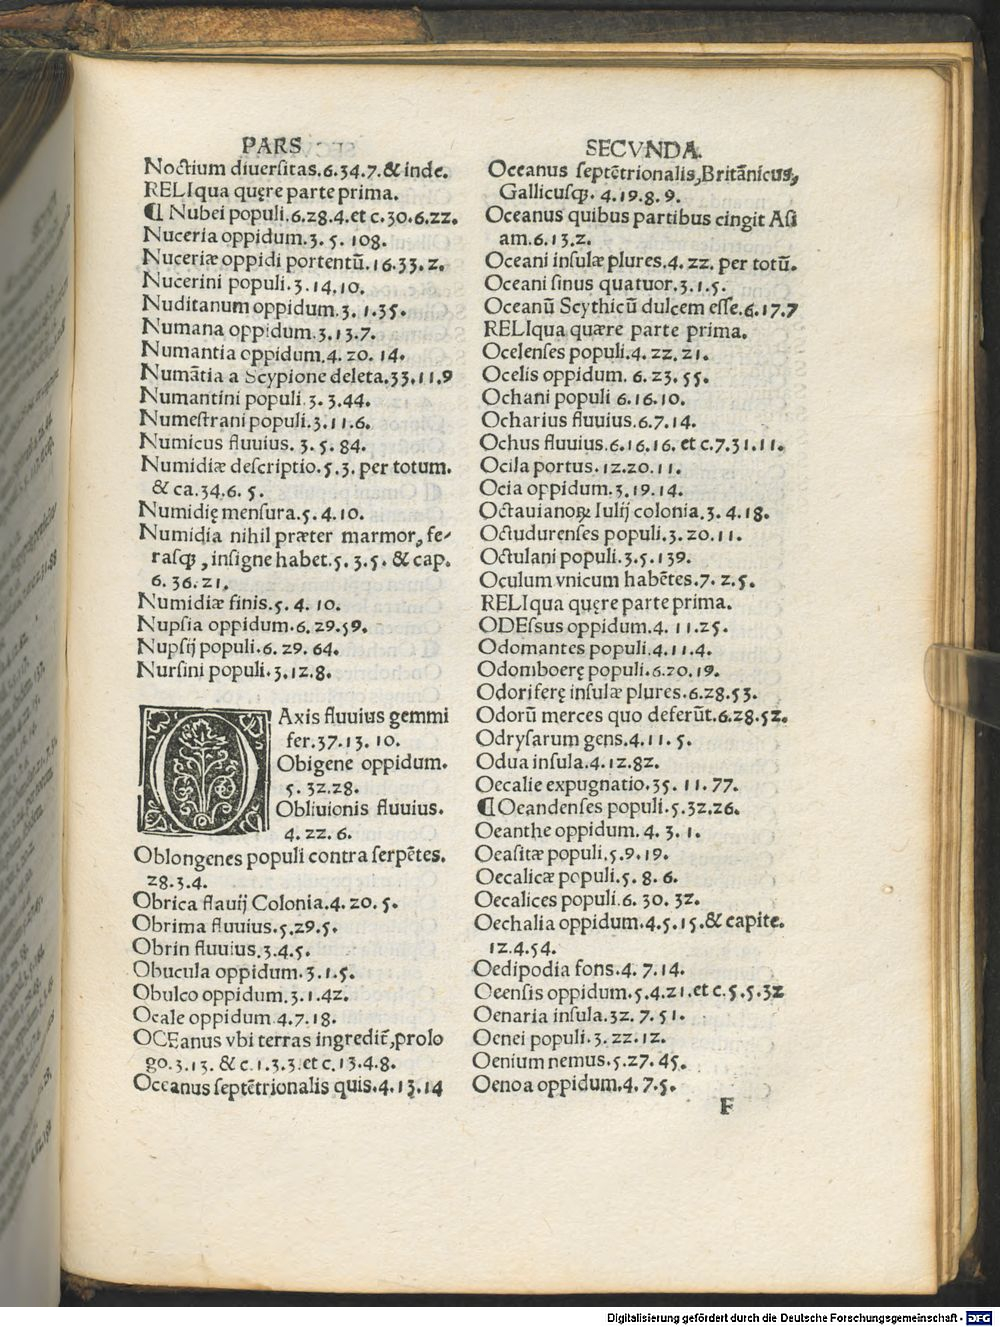 PARS
Noctium diuersitas.6.34.7.& inde.
RELIqua quęre parte prima.
¶ Nubei populi.6.28.4.et c.30.6.22.
Nuceria oppidum.3.5.108.
Nuceriæ oppidi portentũ.16.33.2.
Nucerini populi.3.14.10.
Nuditanum oppidum.3.1.35.
Numana oppidum.3.13.7.
Numantia oppidum.4.20.14.
Numãtia a Scypione deleta.33.11.9
Numantini populi.3.3.44.
Numeſtrani populi.3.11.6.
Numicus fluuius.3.5.84.
Numidiæ deſcriptio.5.3.per totum.
& ca.34.6.5.
Numidię menſura.5.4.10.
Numidia nihil præter marmor, fe-
raſqꝫ, inſigne habet.5.3.5.& cap.
6.36.21.
Numidiæ finis.5.4.10.
Nupſia oppidum.6.29.59.
Nupſij populi.6.29.64.
Nurſini populi.3.12.8.
OAxis fluuius gemmi
fer.37.13.10.
Obigene oppidum.
5.32.28.
Obliuionis fluuius.
4.22.6.
Oblongenes populi contra ſerpẽtes.
28.3.4.
Obrica flauij Colonia.4.20.5.
Obrima fluuius.5.29.5.
Obrin fluuius.3.4.5.
Obucula oppidum.3.1.5.
Obulco oppidum.3.1.42.
Ocale oppidum.4.7.18.
OCEanus vbi terras ingredit̃,prolo
go.3.13.& c.1.3.3.et c.13.4.8.
Oceanus ſeptẽtrionalis quis.4.13.14
SECVNDA.
Oceanus ſeptẽtrionalis,Britãnicus,
Gallicuſqꝫ.4.19.8.9.
Oceanus quibus partibus cingit Aſi
am.6.13.2.
Oceani inſulæ plures.4.22.per totũ.
Oceani ſinus quatuor.3.1.5.
Oceanũ Scythicũ dulcem eſſe.6.17.7
RELIqua quære parte prima.
Ocelenſes populi.4.22.21.
Ocelis oppidum.6.23.55.
Ochani populi 6.16.10.
Ocharius fluuius.6.7.14.
Ochus fluuius.6.16.16.et c.7.31.11.
Ocila portus.12.20.11.
Ocia oppidum.3.19.14.
Octauianoꝝ Iulij colonia.3.4.18.
Octudurenſes populi.3.20.11.
Octulani populi.3.5.139.
Oculum vnicum habẽtes.7.2.5.
RELIqua quęre parte prima.
ODEſsus oppidum.4.11.25.
Odomantes populi.4.11.4.
Odomboerę populi.6.20.19.
Odoriferę inſulæ plures.6.28.53.
Odorũ merces quo deferũt.6.28.52.
Odryſarum gens.4.11.5.
Odua inſula.4.12.82.
Oecalie expugnatio.35.11.77.
¶ Oeandenſes populi.5.32.26.
Oeanthe oppidum.4.3.1.
Oeaſitæ populi.5.9.19.
Oecalicæ populi.5.8.6.
Oecalices populi.6.30.32.
Oechalia oppidum.4.5.15.& capite.
12.4.54.
Oedipodia fons.4.7.14.
Oeenſis oppidum.5.4.21.et c.5.5.32
Oenaria inſula.32.7.51.
Oenei populi.3.22.12.
Oenium nemus.5.27.45.
Oenoa oppidum.4.7.5.
F
Digitalisierung gefördert durch die Deutsche Forschungsgemeinschaft - DFG